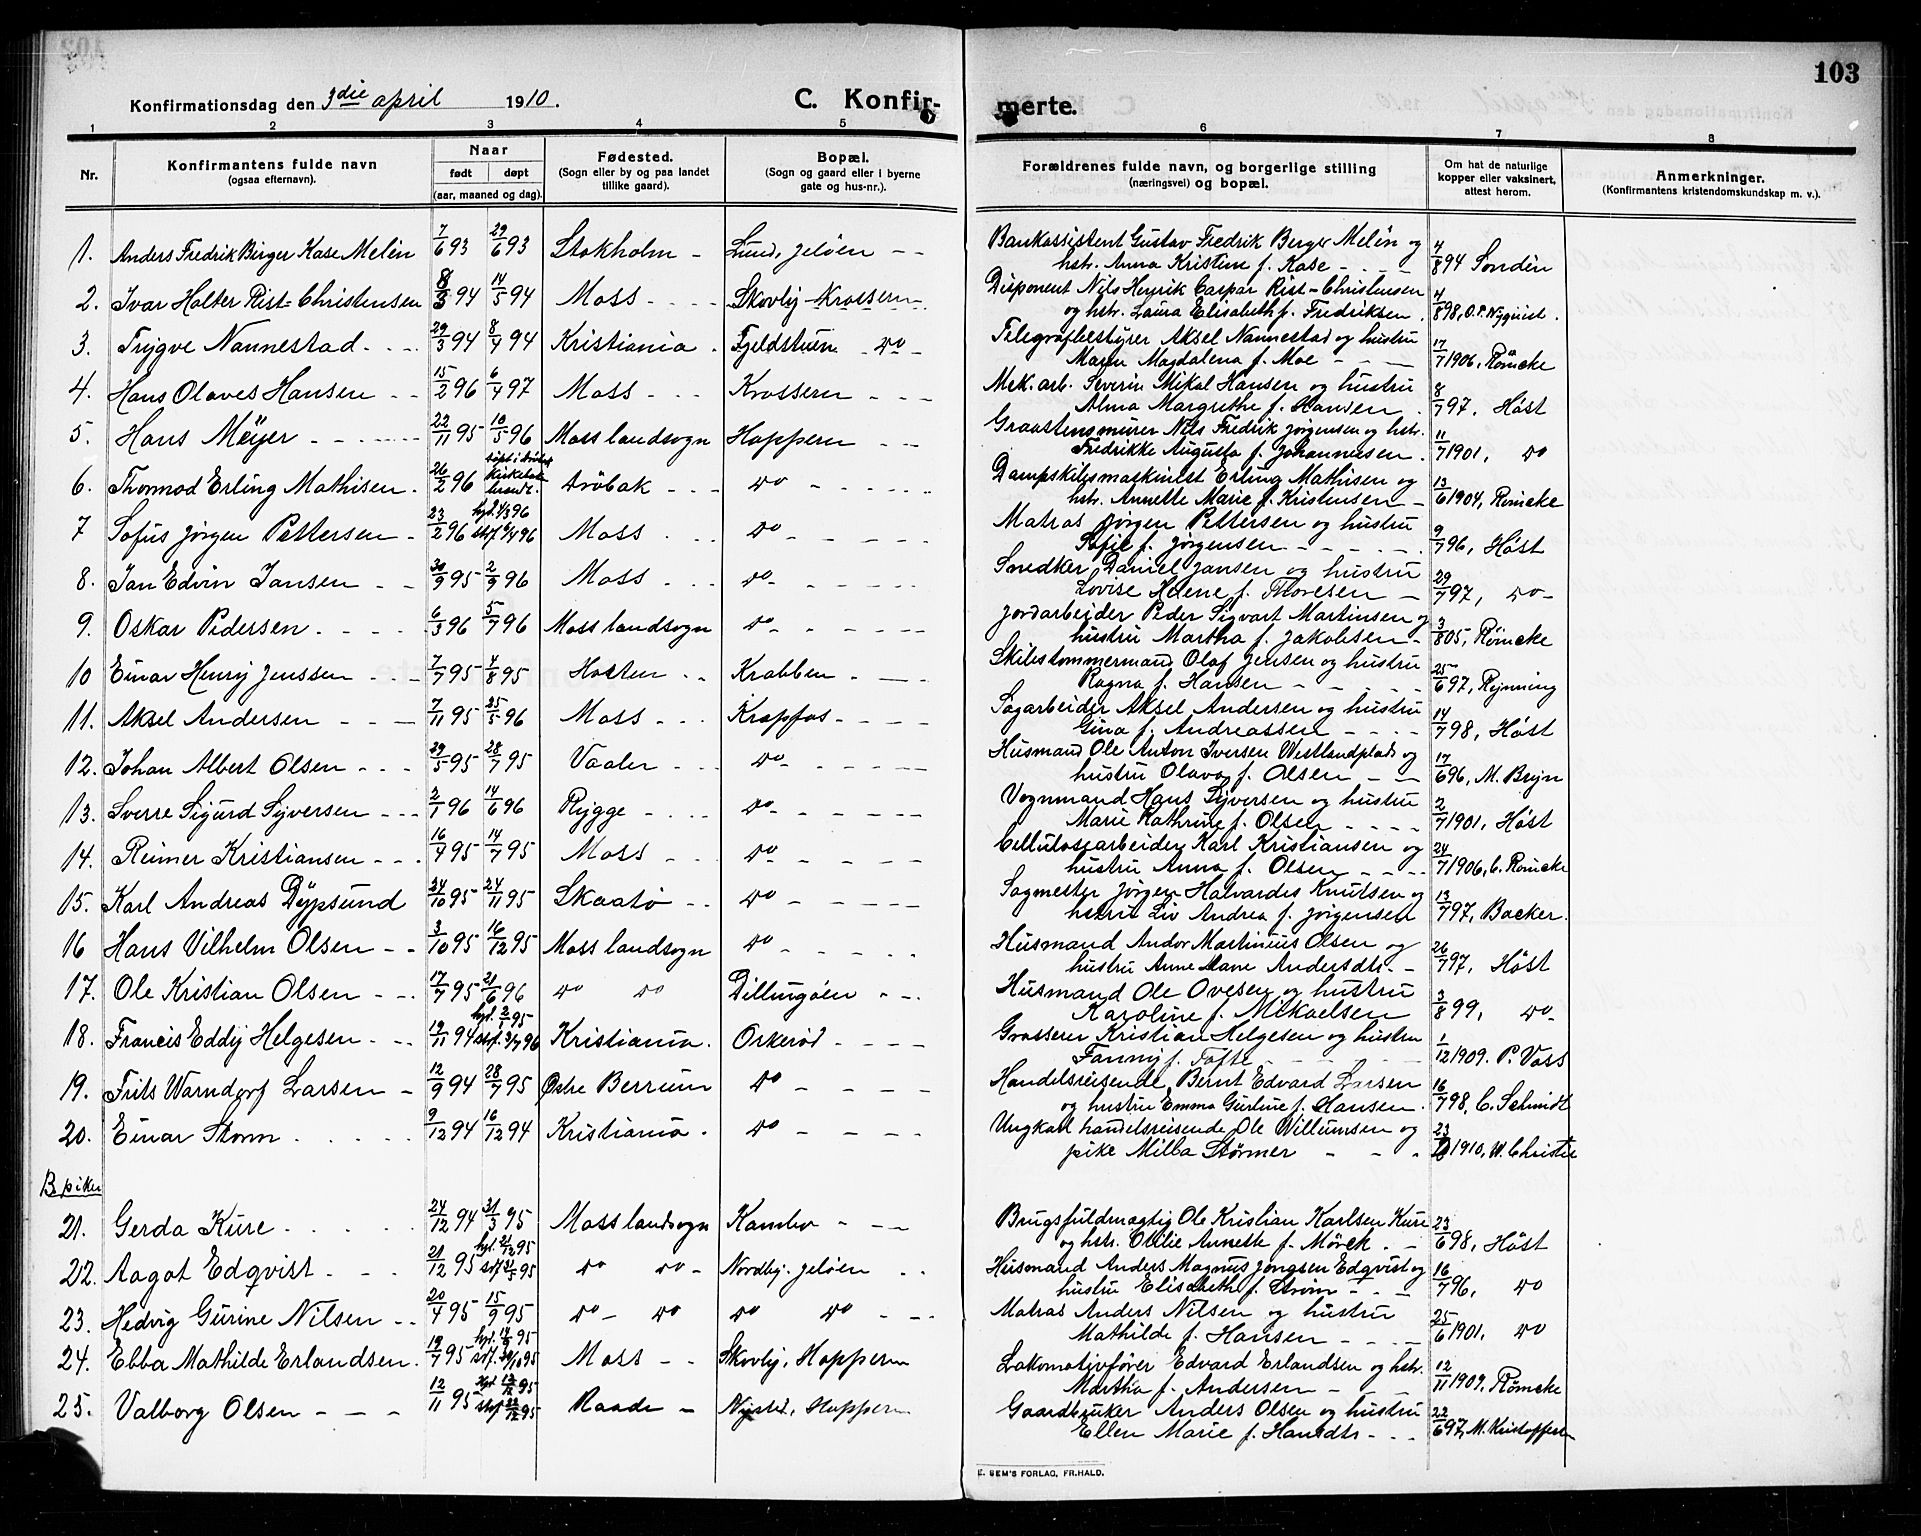 103
Konfirmationsdag den 3die april 1910. C. Konfirmerte.
1 2 3 4 5 6 7 8
Nr. Konfirmantens fulde navn (ogsaa efternavn). Naar født døpt (aar, maaned og dag). Fødested. (Sogn eller by og paa landet tillike gaard). Bopæl. (Sogn og gaard eller i byerne gate og hus-nr.). Forældrenes fulde navn, og borgerlige stilling (næringsvei) og bopæl. Om hat de naturlige kopper eller vaksinert, attest herom. Anmerkninger. (Konfirmantens kristendomskundskap m. v.).
1. Anders Fredrik Birger Kase Melén 7/6 93 29/6 93 Stokholm - Lund, Jeløen - - Bankassistent Gustav Fredrik Berger Melén og
hstr. Anna Kristine f. Kase - - - - 4/8 94 Sondén
2. Ivar Holter Rist=Christensen 8/3 94 14/5 94 Moss - - - Skovly-Krossern - Disponent Nils Henrik Caspar Rist-Christensen
og hstr. Laura Elisabeth f. Fredriksen. 4/8 98, O.P. Nyquist.
3. Trygve Nannestad - - - 29/3 94 8/4 94 Kristiania . Fjeldstuen - do - Telegrafbestyrer Aksel Nannestad og hustru
Maren Magdalena f. Moe - - - 17/7 1906, Römcke
4. Hans Olaves Hansen - - 15/2 96 6/4 97 Moss - - - Krossern - - - Mek. arb. Severin Mikal Hansen og hustru
Alma Margrethe f. Hansen . 8/7 97, Höst
5. Hans Meyer - - - - 22/11 95 10/5 96 Moss landsogn Hoppern - - Graastensmurer Nils Fredrik Jørgensen og hstr.
Fredrikke Augusta f. Johannesen . 11/7 1901, do
6. Thormod Erling Mathisen . 26/2 96 døpt i Drøbak kirkebok Drøbak - - - do - - - - Dampskibsmaskinist Erling Mathisen og
hstr. Annette Marie f. Kristensen - 13/6 1904, Römcke
7 Sofus Jørgen Pettersen - 23/2 96 hjd. 4/3 96 stf. 6/4 96 Moss . . . do - - - - Matros Jørgen Pettersen og hustru
Sofie f. Jørgensen - - - - 9/7 96, Höst
8. Jan Edvin Jansen - - 30/9 95 2/9 96 Moss . . . do - - - - Snedker Daniel Jansen og hustru
Lovise Helene f. Thoresen - 29/7 97, do -
9. Oskar Pedersen . - - - 6/3 96 5/7 96 Moss landsogn do - - - - Jordarbeider Peder Sigvart Martinsen og
hustru Martha f. Jakobsen - 3/8 05, Römcke
10 Einar Henry Jenssen - - - 7/7 95 4/8 95 Horten . . Krabben - - - Skibstømmermand Olaf Jensen og hustru
Ragna f. Hansen - - - 25/6 97, Rynning
11. Aksel Andersen - - - 7/11 95 25/5 96 Moss - - . Krapfos - - - - Sagarbeider Aksel Andersen og hustru
Gina f. Andreassen - - - - 14/7 98, Höst
12. Johan Albert Olsen - - - 29/5 95 28/7 95 Vaaler - - - do - - - - - Husmand Ole Anton Iversen Westlandplads og
hustru Olava f. Olsen - - 17/6 96, M. Bryn
13. Sverre Sigurd Syversen - - - 2/1 96 14/6 96 Rygge - - - - do - - - - - Vognmand Hans Syversen og hustru
Marie Kathrine f. Olsen - - - - 2/7 1901, Höst
14. Reimer Kristiansen - - - 16/4 95 14/7 95 Moss - - do - - - - Cellulosearbeider Karl Kristiansen og
hustru Anna f. Olsen - - - - 24/7 1906, C. Römcke
15. Karl Andreas Dypsund 24/10 95 24/11 95 Skaatø - - do - - - - - Sagmester Jörgen Halvardis Knutsen og
hustru Liv Andrea f. Jørgensen 13/7 97, Backer.
16 Hans Vilhelm Olsen - - 3/10 95 16/12 95 Moss landsogn do - - - - - Husmand Andor Martinius Olsen og
hustru Anne Marie Andersdtr. - 26/7 97, Höst
17. Ole Kristian Olsen - - - 17/7 95 21/6 96 do do Dillingøen - - . Husmand Ole Ovesen og hustru
Karoline f. Mikaelsen 3/8 99, do -
18. Francis Eddy Helgesen - - - 19/11 94 hjd. 2/1 95 stf. 3/7 96 Kristiania . Orkerød - - - - Grosserer Kristian Helgesen og hustru
Fanny f. Tofte - - - - - 1/12 1909. P. Voss
19. Frits Warndorf Larsen - 12/9 94 28/7 95 Østre Berrum do - - - - Handelsreisende Bernt Edvard Larsen
og hustru Emma Gurine f. Hansen. 16/7 98, C. Schmidt
20. Einar Storm . . . . . 9/12 94 16/12 94 Kristiania . do - - - - Ungkarl handelsreisende Ole Willumsen og
pike Milba Størmer - - - 1910, W. Christie
B piker
21. Gerda Kure . . . . . 24/12 94 31/3 95 Moss landsogn Kambo - - - Brugsfuldmægtig Ole Kristian Karlsen Kure
og hstr. Otilie Annette f. Mörck . - 23/6 98, Höst
22. Aagot Edqvist . - - - 21/12 95 do do - Nordby. Jeløen . . Husmand Anders Magnus Jongsen Edqvist og
hustru Elisabeth f. Ström - - - 16/7 96, do
23. Hedvig Gurine Nilsen - - 20/4 95 15/9 95 do do do do - - - Matros Anders Nilsen og hustru
Mathilde f. Hansen - - - - 25/6 1901, do
24. Ebba Mathilde Erlandsen. 19/7 95 Moss - - Skovly, Hoppern Lokomotivfører Edvard Erlandsen og hstr.
Martha f. Andersen - - - 12/11 1909, Römcke
25. Valborg Olsen - - - 12/11 95 Raade - Nysted, Hoppern Gaardbruker Anders Olsen og hustru
Ellen Marie f. Hansdtr - - - 22/6 97, M. Kristoffersen
E. SEM'S FORLAG, FR.HALD.